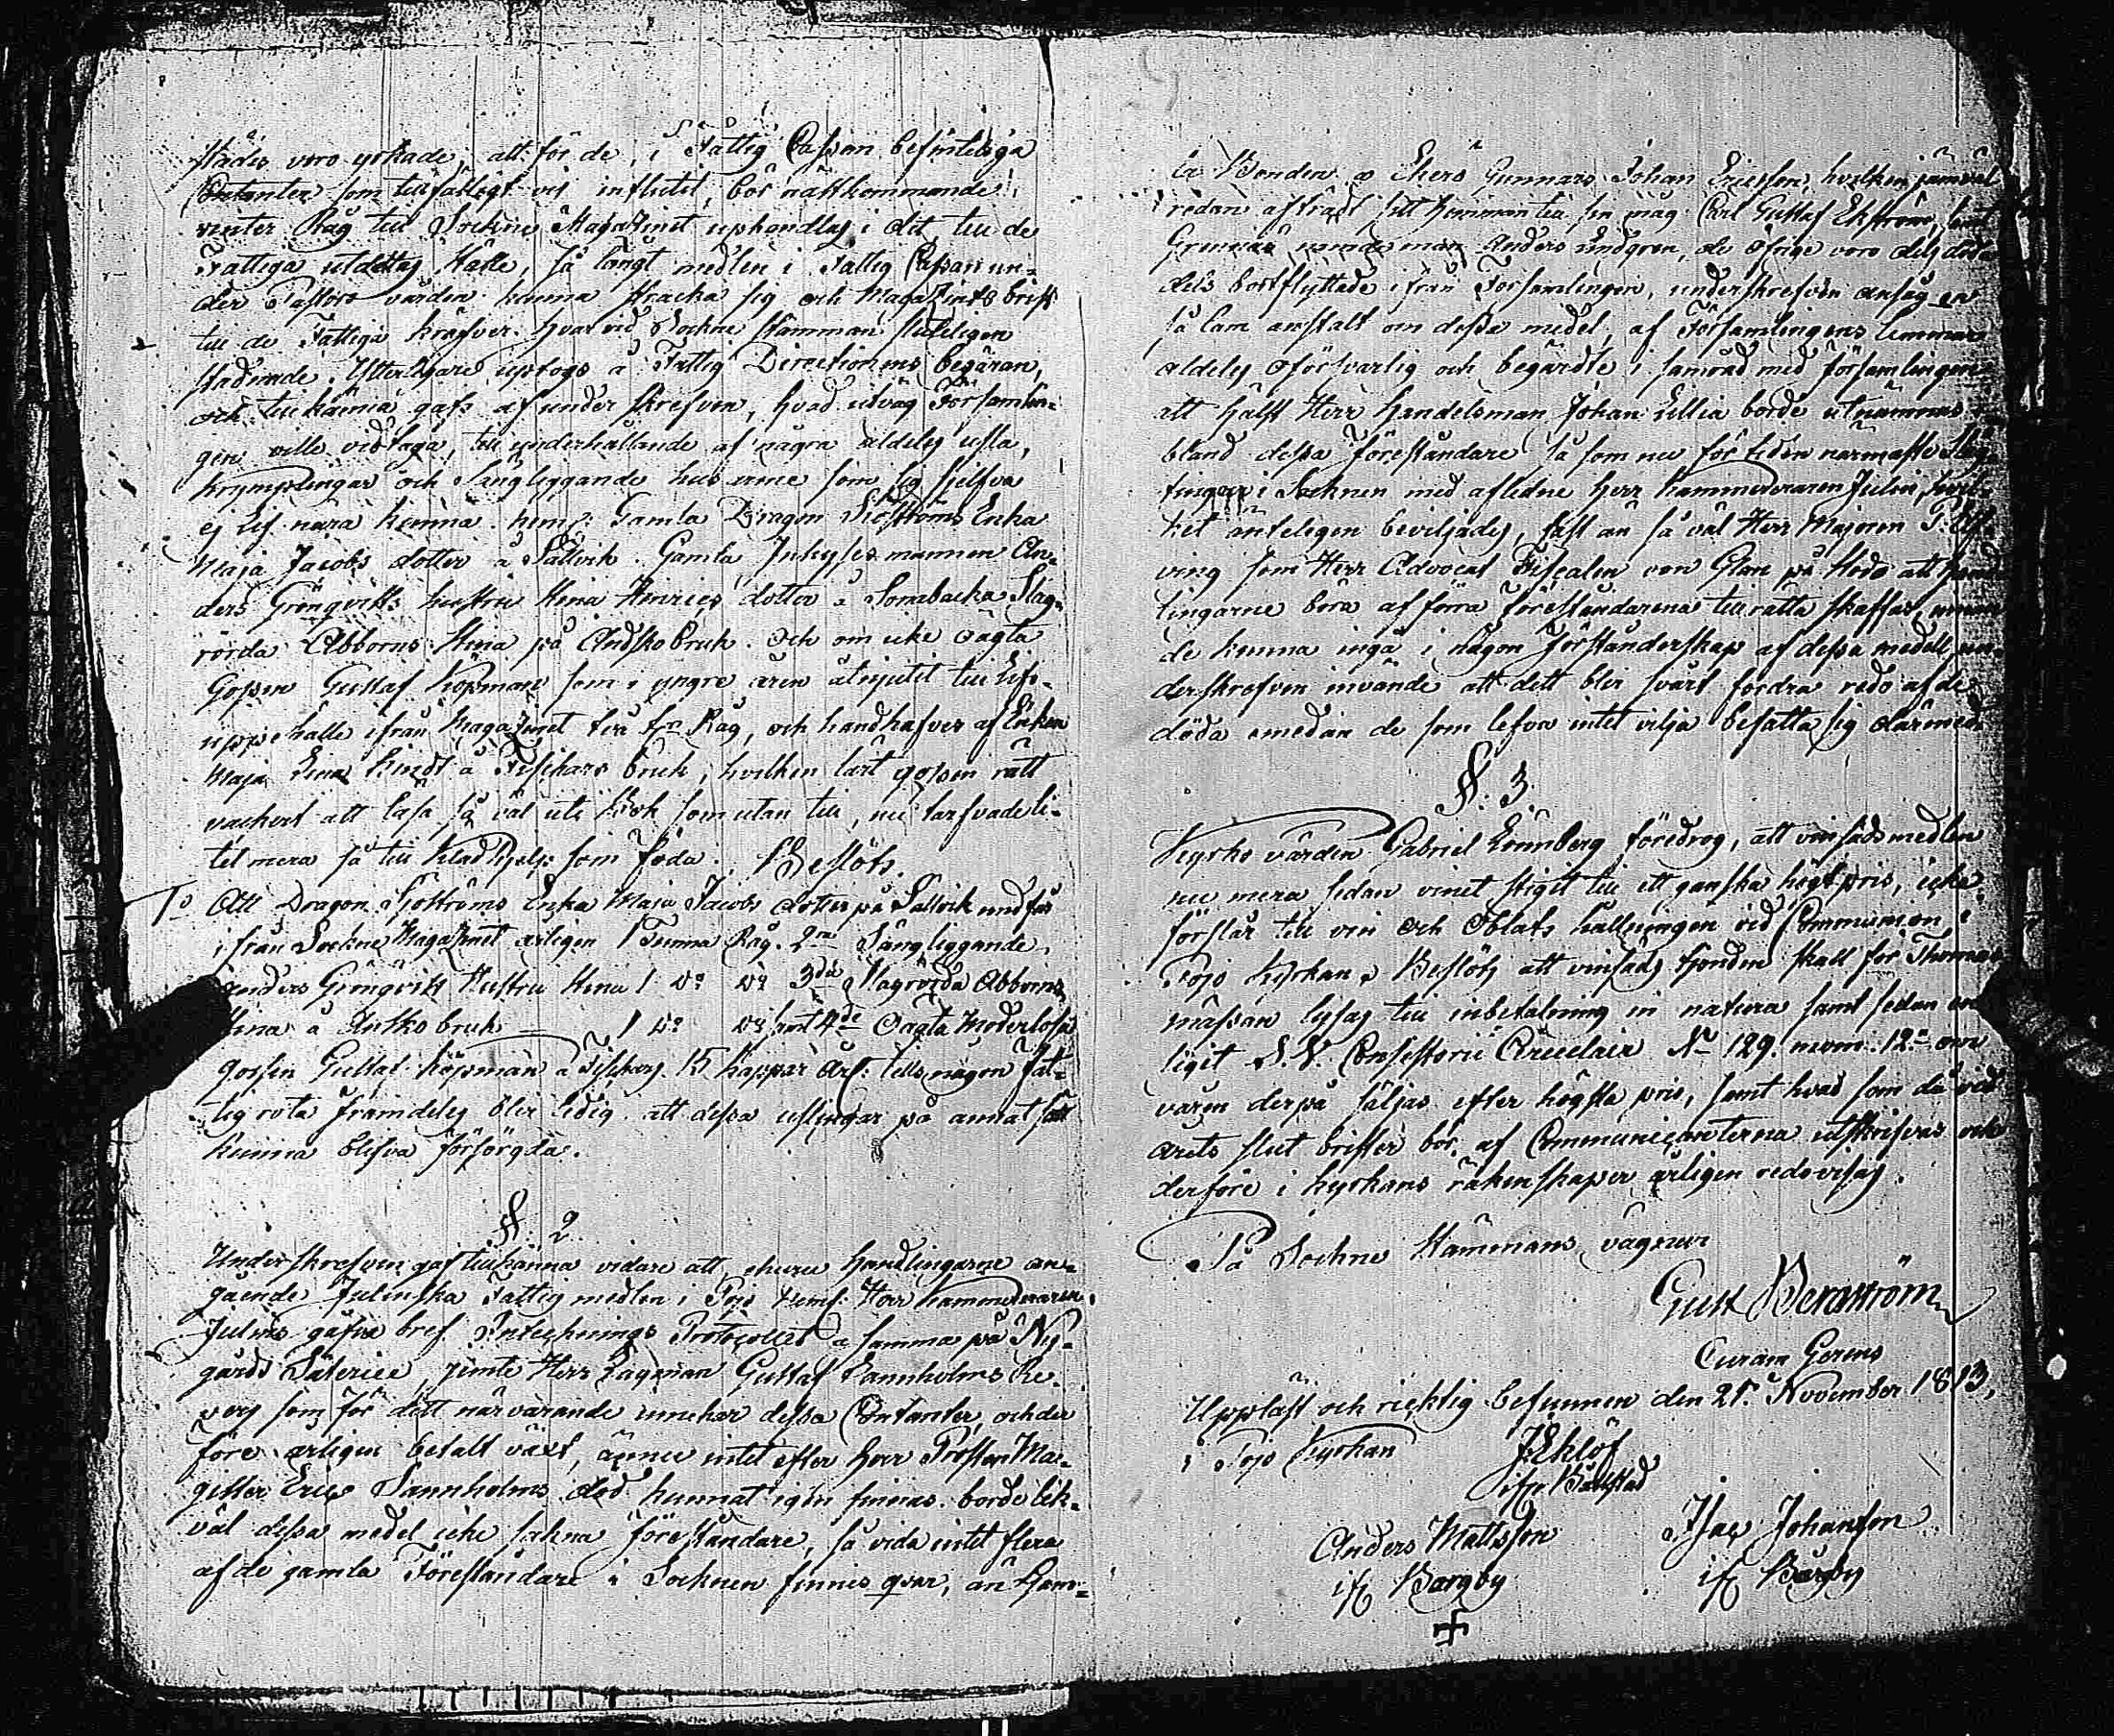 städes voro yrkade, att för de, i Fattig Cassan befinteliga
Contanter som tillfälligt vis influtit, bör nästkommande
vinter Råg till Sockne Magazinet uphandlas i det till de
Fattiga utdettas ställe, så långt medlen i Fattig Cassan un-
der Pastors vården kunna sträcka sig och Magazinets brist
till de Fattiga kräfver. hvar vid Sockne stämman
stadnade. Ytterligare uptogs å Fattig Directionens begäran,
och tillkänna gafs af underskrefven, hvad utväg Församlin-
gen ville vidtaga, till underhållande af några aldeles usla,
krymplingar och Sängliggande hus arme som sig sjelfva
ej lif nära kunna. nemf: Gamla Dragon Sjöströms Enka
Maja Jacobs dotter å Sällvik. Gamla mannen An-
ders Grönqvists hustru Stina Henrics dotter å Sonabacka Slag-
rörda Abborns Stina på Antskobruk. och om icke oägta
Gossen Gustaf Köpman som i yngre åren åtnjutit till lifs-
uppehälle ifrån Magazinet två Råg, och handhafves af Enkan
Maja Lina å Fiskars bruk, hvilken lärt gossen rätt
vackert att läsa så väl uti bok som utan till, nu tarfvade li-
tet mera så till klädhjelp som föda. Beslöts.
1o Att Dragon Sjöströms Enka Maja Jacobs dotter på Sällvik undfår
ifrån Sockne Magazinet årligen 1 Tunna Råg. 2do Sängliggande
Anders Grönqvists Hustru Stina 1 do do 3die Slagrörda Abborns
Stina å Antskobruk — 1 do do samt 4de Oägta Moderlösa
gossen Gustaf Köpman å Fiskars 15 Kappar tills någon Fat-
tig rota framdeles blir ledig att dessa uslingar på annat sätt
kunna blifva försörgda.
§. 2.
Underskrefven gaf tillkänna vidare att ehuru Handlingarne an-
gående Julinska Fattig medlen i Pojo nemf: Herr Kammereraren
Julins gåfvo bref Anteckinings Protocollet å samma på Ny-
gårds Säterie, jämte Herr Lagman Gustaf Sannholms Re-
vers som för dett närvarande innehar dessa Contanter, och der
före årligen betalt växt, ännu intet efter Herr Prosten Ma-
gister Eric Sannholms död kunnat igen finnas. borde lik-
väl dessa medel icke sakna föreståndare, så vida intet flera
af de gamla Föreståndare i Socknen finnes qvar, än Gam-
la Bonden å Ekerö Gunnars Johan Ericsson, hvilken jämväl
redan afträdt sitt hemman till sin måg Carl Gustaf Ekström, samt
nämndeman Anders Lindgren, de öfrige voro dels döda
dels bortflyttade ifrån Församlingen, underskrefven ansåg en
så lam anstalt om dessa medel, af Församlingens
aldeles oförsvarlig och begärdte i samråd med församlingen
att hälst Herr Handelsman Johan borde utnämnas i
bland dessa föreståndare så som nu för tiden närmaste Släg-
tingen i Socknen med aflidne Herr Kammereraren Julin, hvil-
ket äntelegen beviljades, fast än så väl Herr Majoren
ving som Herr Advocat Fiscalen von Glan påstodo att hand-
lingarne böra af förra föreståndarena till rätta skaffas, innan
de kunna ingå i någon förstånderskap af dessa medell, un-
derskrefven invände att dett blir svårt fordra redo af de
döda emedan de som lefva intet vilja befatta sig därmed.
§. 3.
Kyrko värden Gabriel Lönnberg föredrog, att vinsäds medlen
nu mera sedan vinet stigit till ett ganska högt pris, icke
förslår till vin och Oblats hållningen vid Communion i
Pojo Kyrkan, Beslöts att vinsäds Fonden skall för Thomas
mässan lysas till inbetalning in natura samt sedan en
ligit S. V. Consistorii Circulair No 129. mom: 12:o
varen derpå säljas efter högsta pris, samt hvad som då vid
årets slut brister bör af Communicanterna utskrifvas och
derföre i Kyrkans räkenskaper årligen redovisas.
På Sockne Stämmans vägnar
Gust Bergström
Curam Gerens
Uppläst och ricktig befunnen den 21. November 1813,
i Pojo Kyrkan
J Eklöf
ifr Bällstad
Anders Mattsson
ifr Bärgby
Isac Johansson
ifr Bärgby